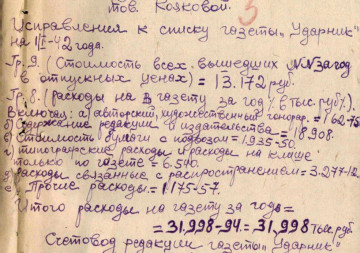 тов. Кояковой. 5
Исправления к списку газеты „Ударник"
на 1/I-42 года.
Гр. 9. (Стоимость всех вышедших №№ за год
в отпускных ценах) = 13.172 руб.
Гр. 8. (расходы на газету за год в тыс. руб.).
Включая: а) авторский, художественный гонорар. = 162-75
б) Содержание редакции и издательства = 18908.
в) Стоимость бумаги с подвозом = 1.935-50.
г) типографские расходы и расходы на клише
только по газете = 6.540.
д) расходы связанные с распространением = 3.277-12
е) Прочие расходы. = 1175-57.
Итого расходы на газету за год =
= 31,998-94. = 31,998 тыс. руб.
Счетовод редакции газеты „Ударник"